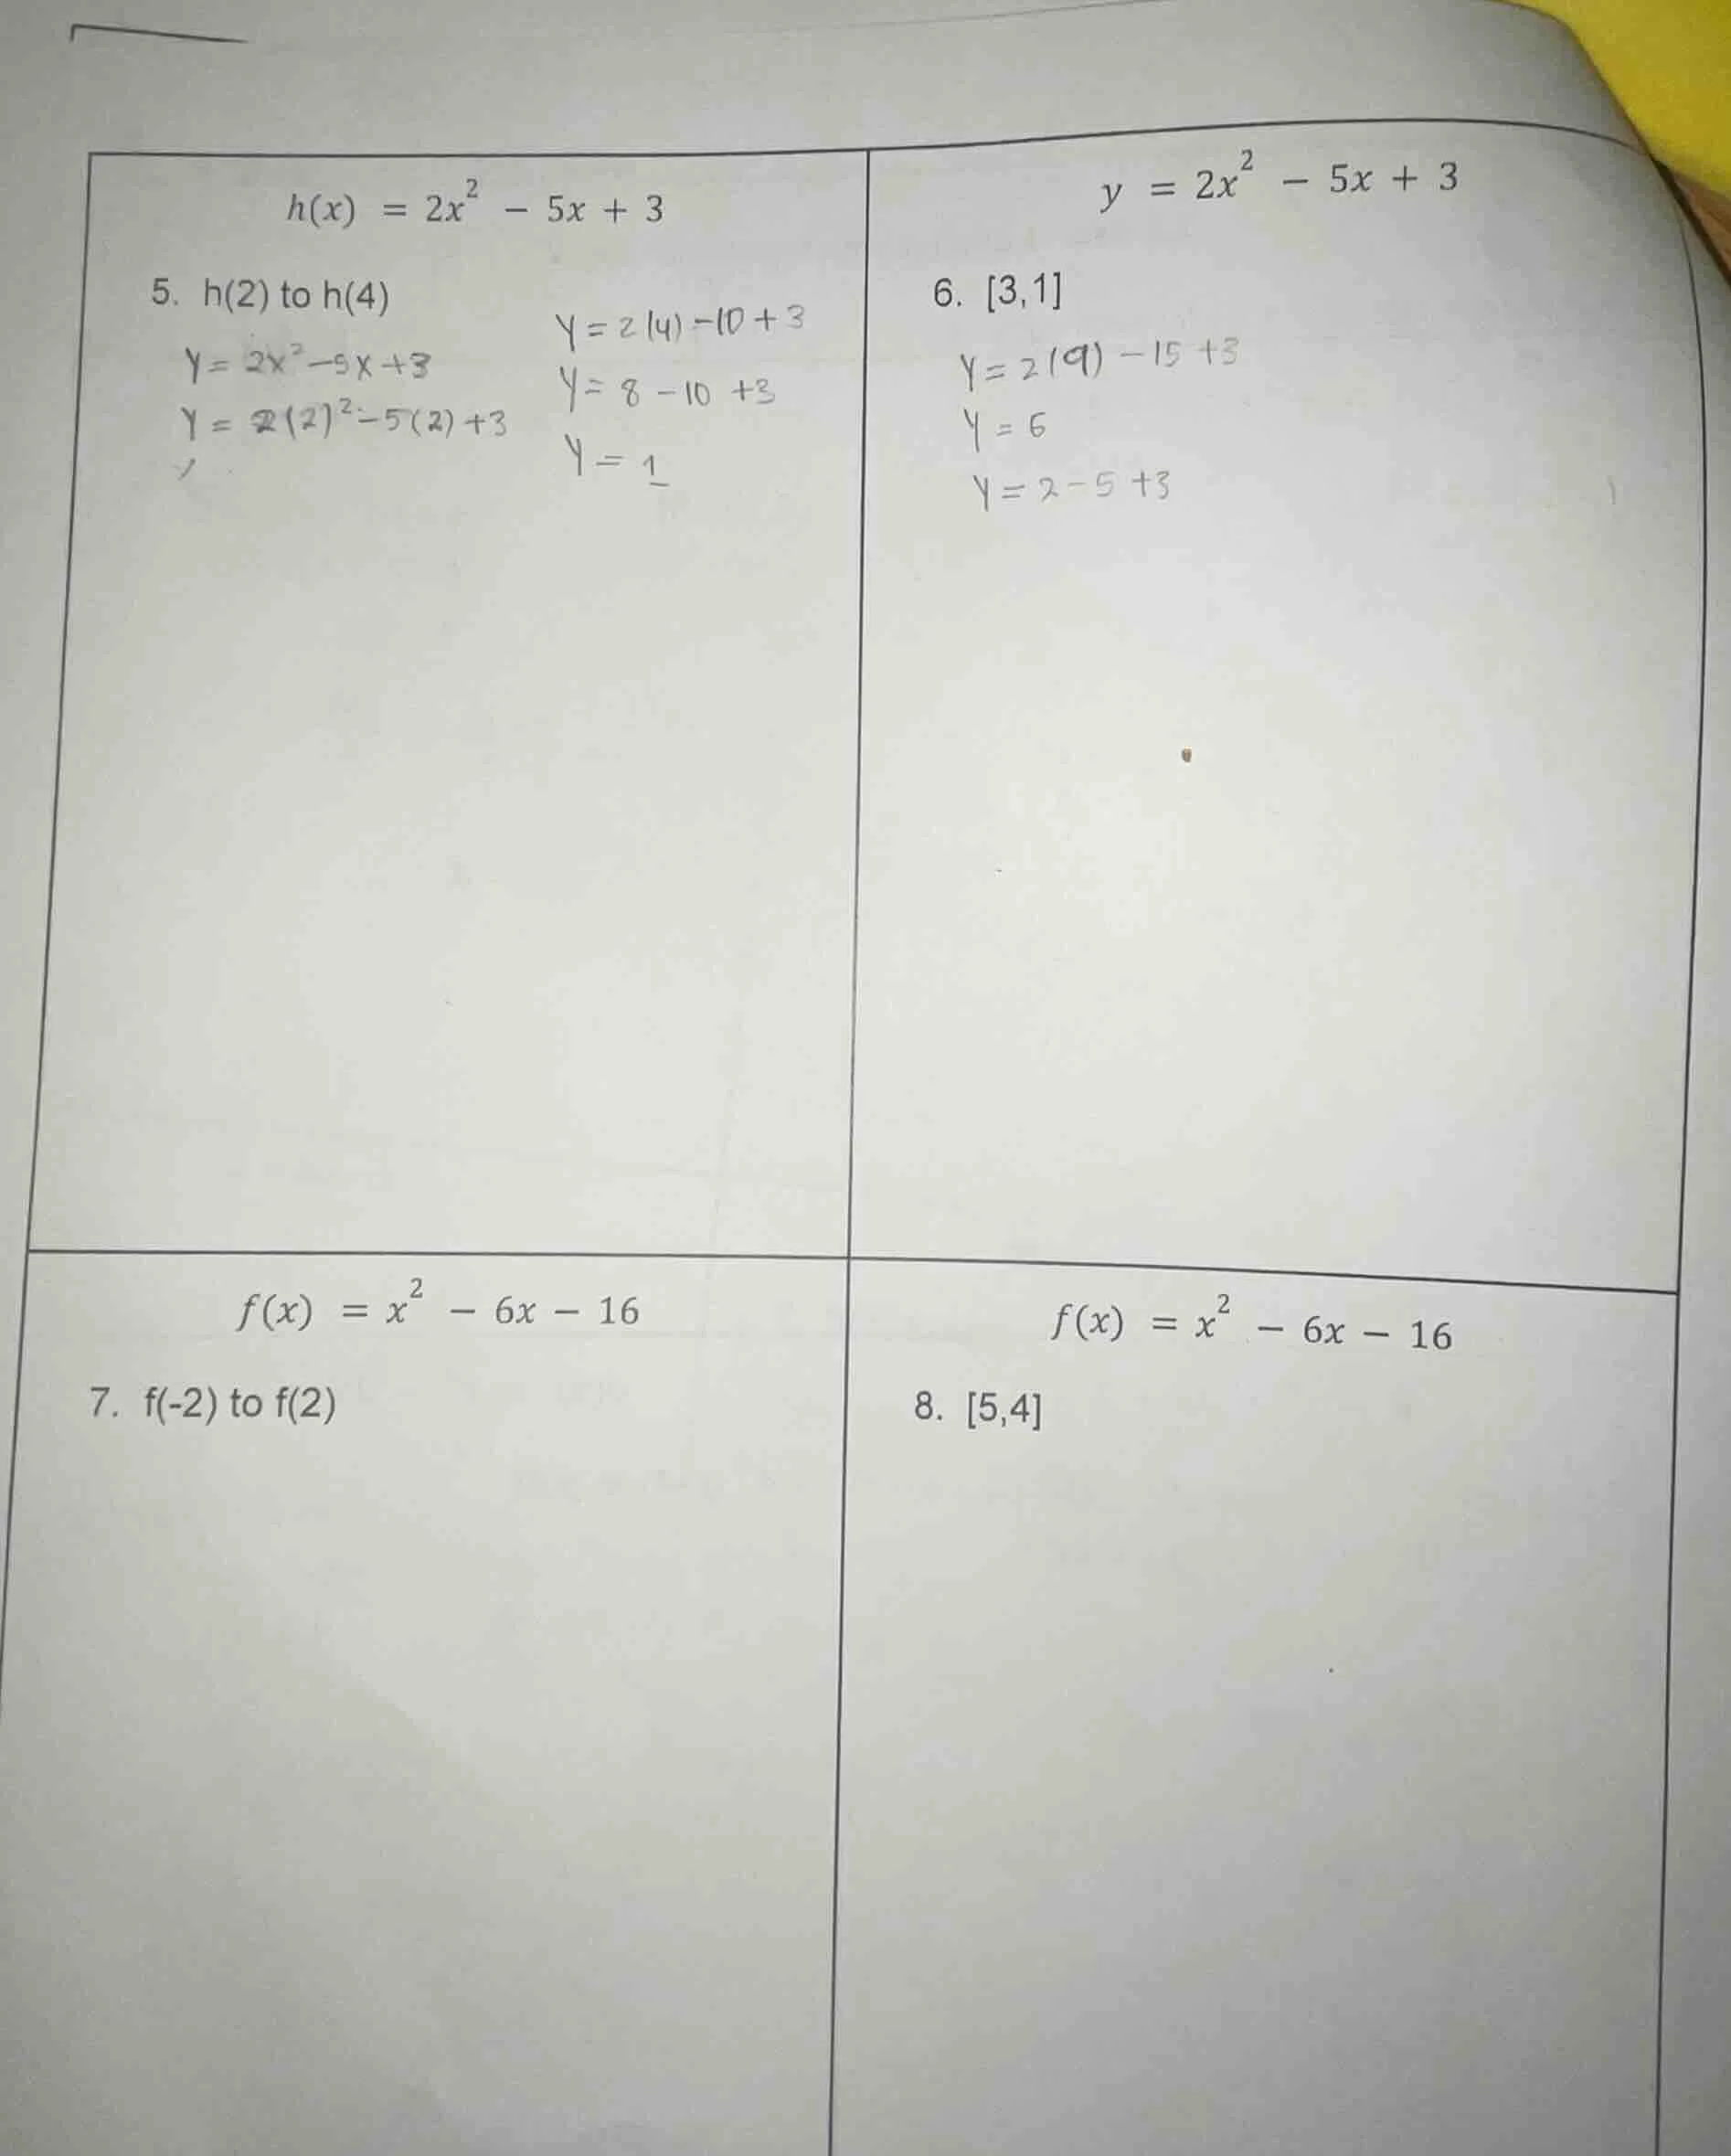 h(x) = 2x² − 5x + 3
5. h(2) to h(4)
y = 2x² − 5x + 3
y = 2(2)² − 5(2) + 3
y = 2(4) − 10 + 3
y = 8 − 10 + 3
y = 1
y = 2x² − 5x + 3
6. [3,1]
y = 2(9) − 15 + 3
y = 6
y = 2 − 5 + 3
f(x) = x² − 6x − 16
7. f(-2) to f(2)
f(x) = x² − 6x − 16
8. [5,4]